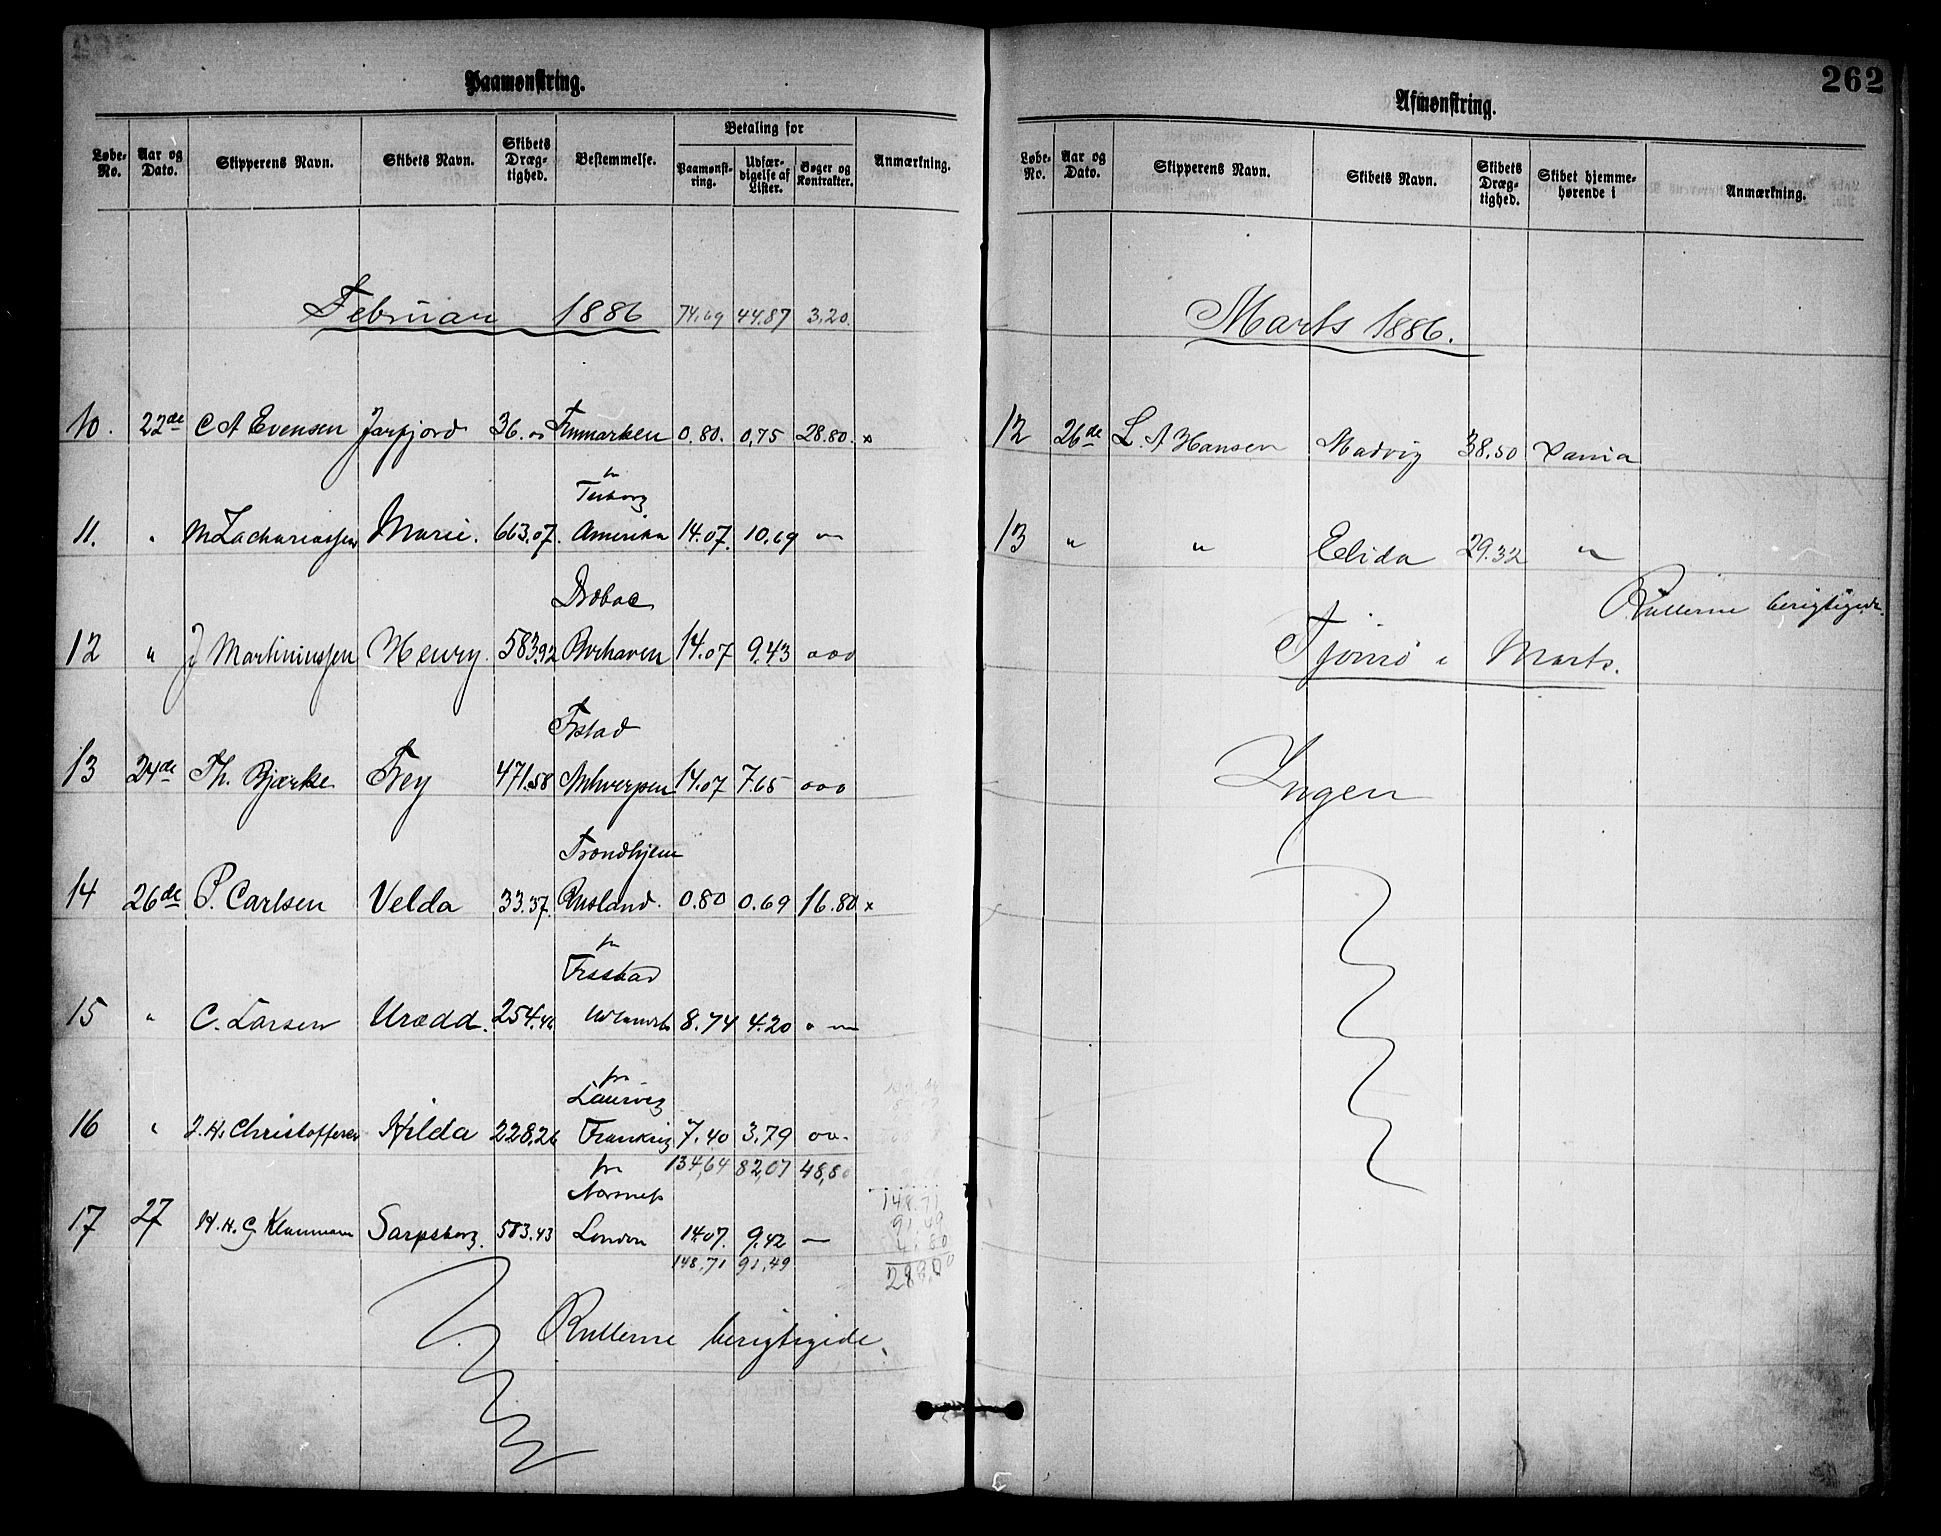 Paamønstring.
Løbe-No. Aar og Dato. Skipperens Navn. Skibets Navn. Skibets Dræg-tighed. Bestemmelse. Betaling for Paamønst-ring. Udfær-digelse af Lister. Bøger og Kontrakter. Anmærkning.
Februar 1886 74,69 44.87 3,20.
10. 22de C A Evensen Jarfjord 36. Finmarken 0.80. 0,75 28.80. x
fr
11. " M Zachariassen Marie. 663.07. Amerika 14.07. 10.69 "
Drøbac
12 " J Martiniussen Henry. 583.92 14.07 9.43 000
Frstad
13 24de Th. Bjærke Frey 471.58 Antwerpen 14.07 7.65 000
Trondhjem
14 26de P. Carlsen Velda 33.37. Rusland. 0.80 0.69 16.80 x
fr
Frsstad
15 " C. Larsen Urædd. 254.46 Udlandet 8.74 4.20
fra
Laurvig
16 " J. H. Christoffersen Hilda 228,26 Frankrig 7.40 3.79
134,64 82,07 48,80
fra
17 27 H. H. G Klaumann Sarpsborg. 583.43 London 14.07. 9.42 —
148.71 91.49
148.71
91.49
Rullerne berigtigede.
262
Afmønstring.
Løbe-No. Aar og Dato. Skipperens Navn. Skibets Navn. Skibets Dræg-tighed. Skibet hjemme-hørende i Anmærkning.
Marts 1886.
12 26de L. A Hansen Madvig 38.50 Dania
13 " " Elida 29.32 "
Rullerne berigtigede.
Tjømø i Marts.
Ingen